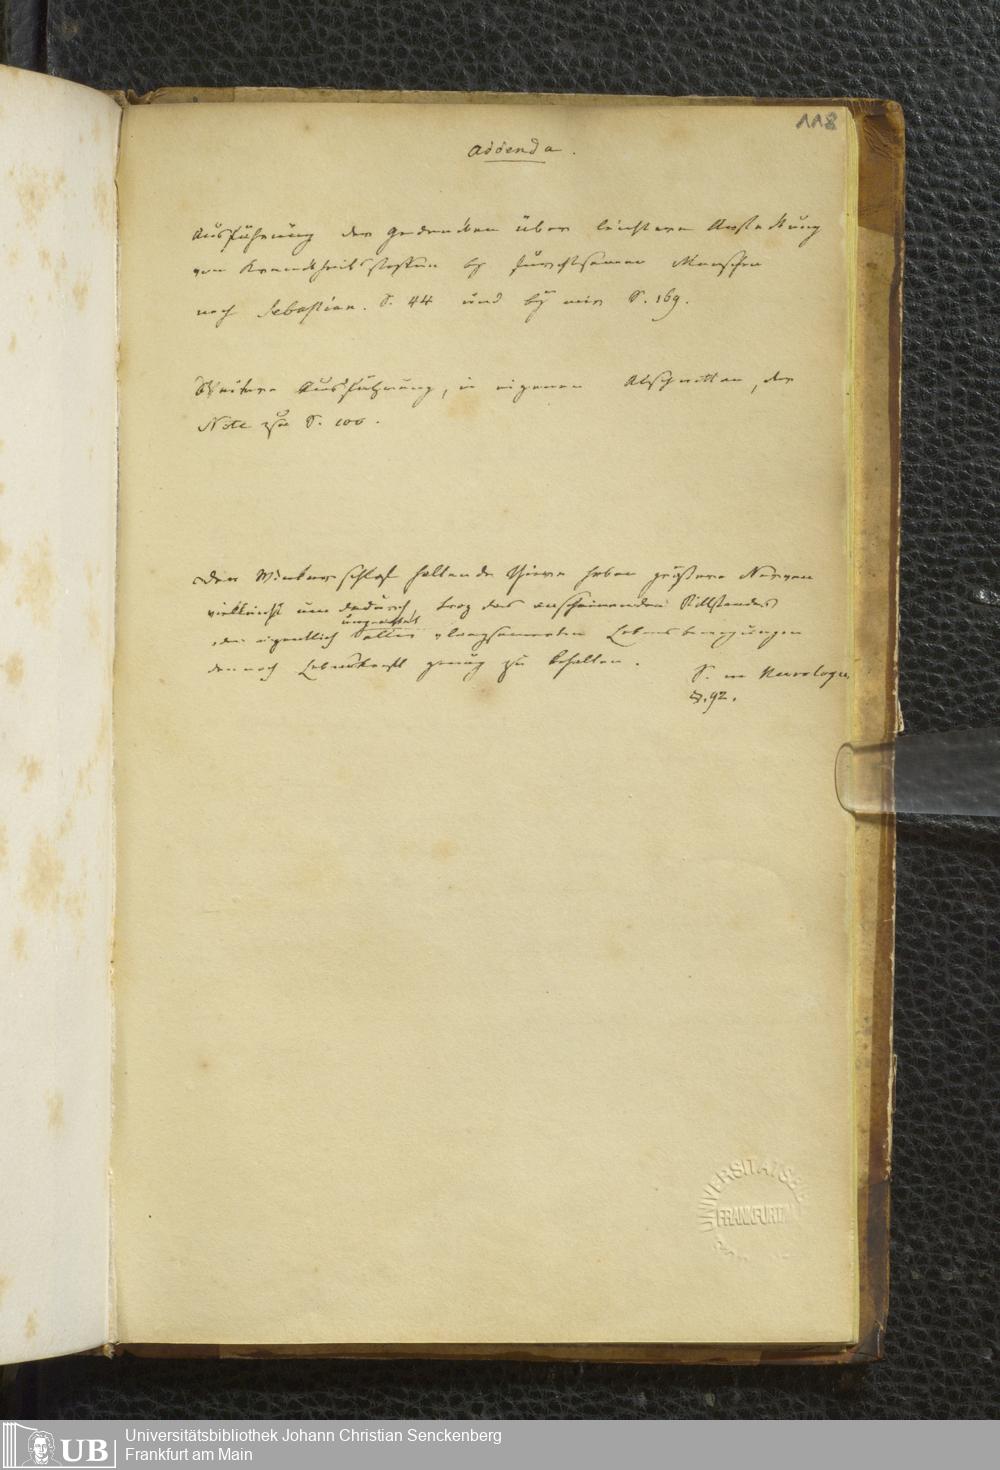 118
Addenda.
Ausführung des Gedanken über leichtere Ansteckung
von Krankheitsstoffen by furchtsamen Menschen
nach Sebastian. S. 44 und by mir S. 169.
Weitere Ausführung, in eigenen Abschnitten, der
Note zu S. 100.
Den Winterschlaf haltende Thiere haben größere Nerven
vielleicht um dadurch, troz des anscheinenden Stillstandes
ungeachtet
der eigentlich langsameren Lebensbewegungen
dennoch Lebenskraft genug zu behalten.
S. m Nevrologie
S. 92.
UNIVERSITÄTSB
FRANKFURT
UB
Universitätsbibliothek Johann Christian Senckenberg
Frankfurt am Main